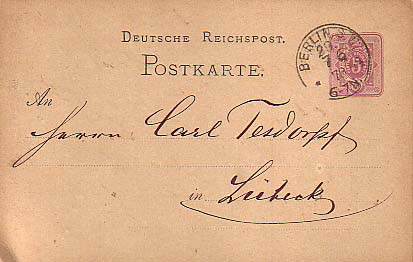 DEUTSCHE REICHSPOST.
POSTKARTE.
BERLIN S.W.
5
6-7N
An
Herrn Carl Tesdorpf
in Lübeck